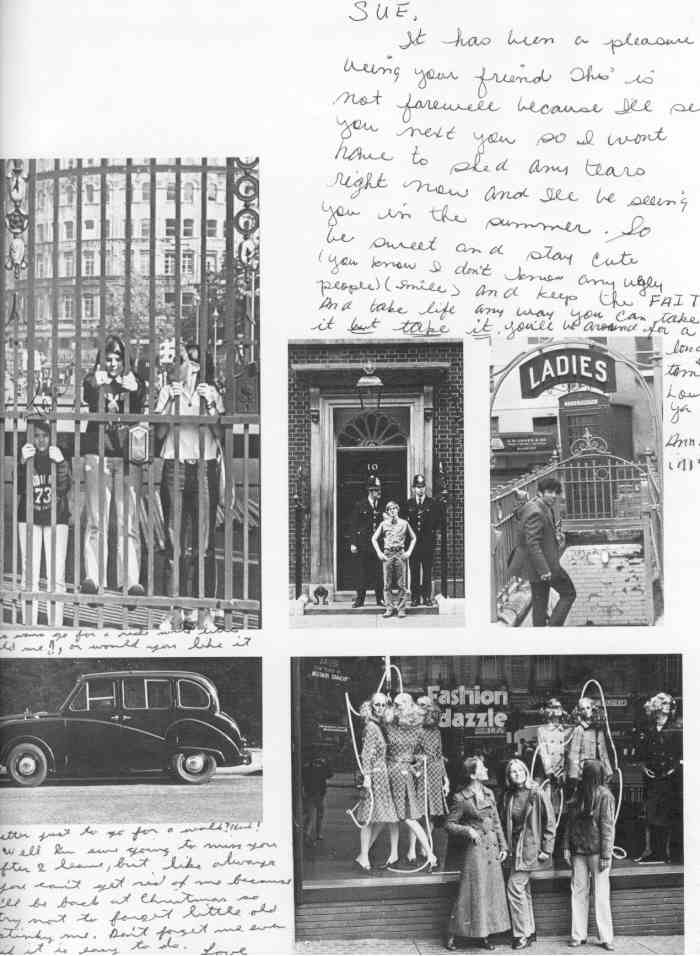 SUE.
It has been a pleasure
being your friend This is
not farewell because Ill se
you next you so I wont
have to shed any tears
right now and Ill be seeing
you in the summer. So
be sweet and stay cute
(you know I don't know any ugly
people) (smile) and keep the FAIT
And take life any way you can take
it but take it. you'll be around for a
long
Ya
Ann
LADIES
10
73
go for a ride
me!!, or would you like it
Fashion
dazzle
etter just to go for a walk? Huh!
Well Im sure going to miss you
fter I leave, but like always
you can't get rid of me because
ll be back at Christmas so
try not to forget little old
stinky me. Don't forget me even
it is easy to do. Love